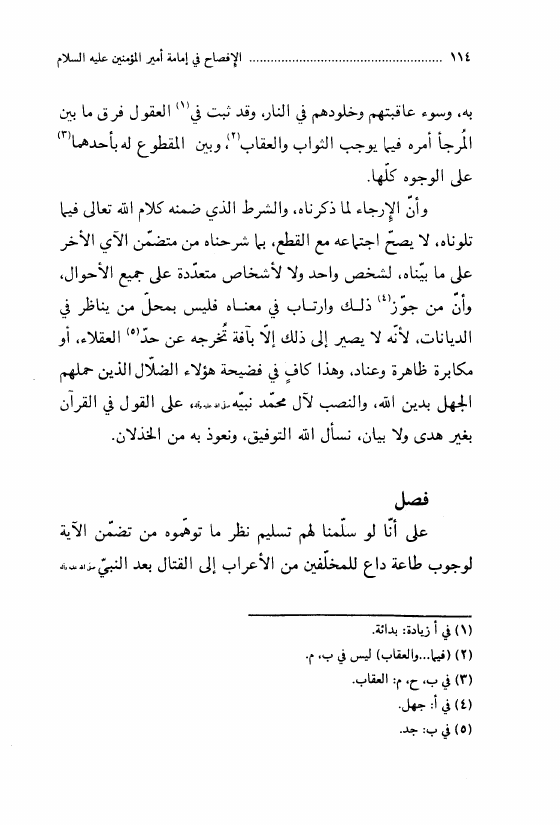 ١١٤ ...................................................... الإفصاح في إمامة أمير المؤمنين عليه السلام
به، وسوء عاقبتهم وخلودهم في النار، وقد ثبت في(١) العقول فرق ما بين
المُرجأ أمره فيما يوجب الثواب والعقاب(٢)، وبين المقطوع له بأحدهما(٣)
على الوجوه كلّها.
وأنّ الإرجاء لما ذكرناه، والشرط الذي ضمنه كلام الله تعالى فيما
تلوناه، لا يصحّ اجتماعه مع القطع، بما شرحناه من متضمّن الآي الأخر
على ما بيّناه، لشخص واحد ولا لأشخاص متعدّدة على جميع الأحوال،
وأنّ من جوّز(٤) ذلك وارتاب في معناه فليس بمحلّ من يناظر في
الديانات، لأنّه لا يصير إلى ذلك إلّا بآفة تُخرجه عن حدّ(٥) العقلاء، أو
مكابرة ظاهرة وعناد، وهذا كافٍ في فضيحة هؤلاء الضلّال الذين حملهم
الجهل بدين الله، والنصب لآل محمّد نبيّه صلى الله عليه وآله، على القول في القرآن
بغير هدى ولا بيان، نسأل الله التوفيق، ونعوذ به من الخذلان.
فصل
على أنّا لو سلّمنا لهم تسليم نظر ما توهّموه من تضمّن الآية
لوجوب طاعة داع للمخلّفين من الأعراب إلى القتال بعد النبيّ صلى الله عليه وآله
(١) في أ زيادة: بدائة.
(٢) (فيما...والعقاب) ليس في ب، م.
(٣) في ب، ح، م: العقاب.
(٤) في أ: جهل.
(٥) في ب: جد.